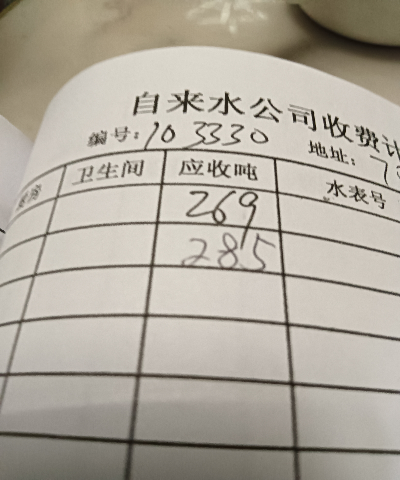 自来水公司收费
编号:103330 地址:
卫生间 应收吨 水表号
269
285